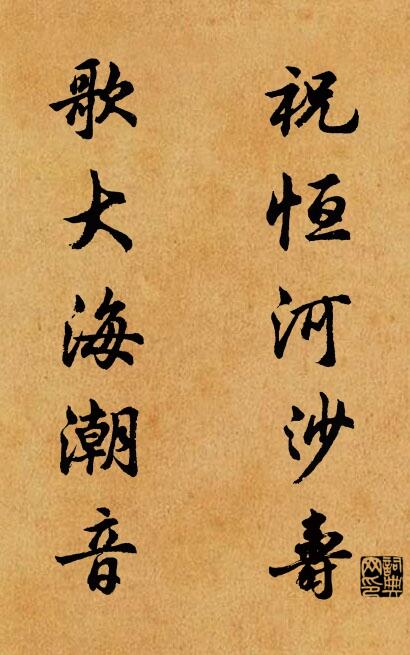 祝恒河沙壽
歌大海潮音
詞典网印